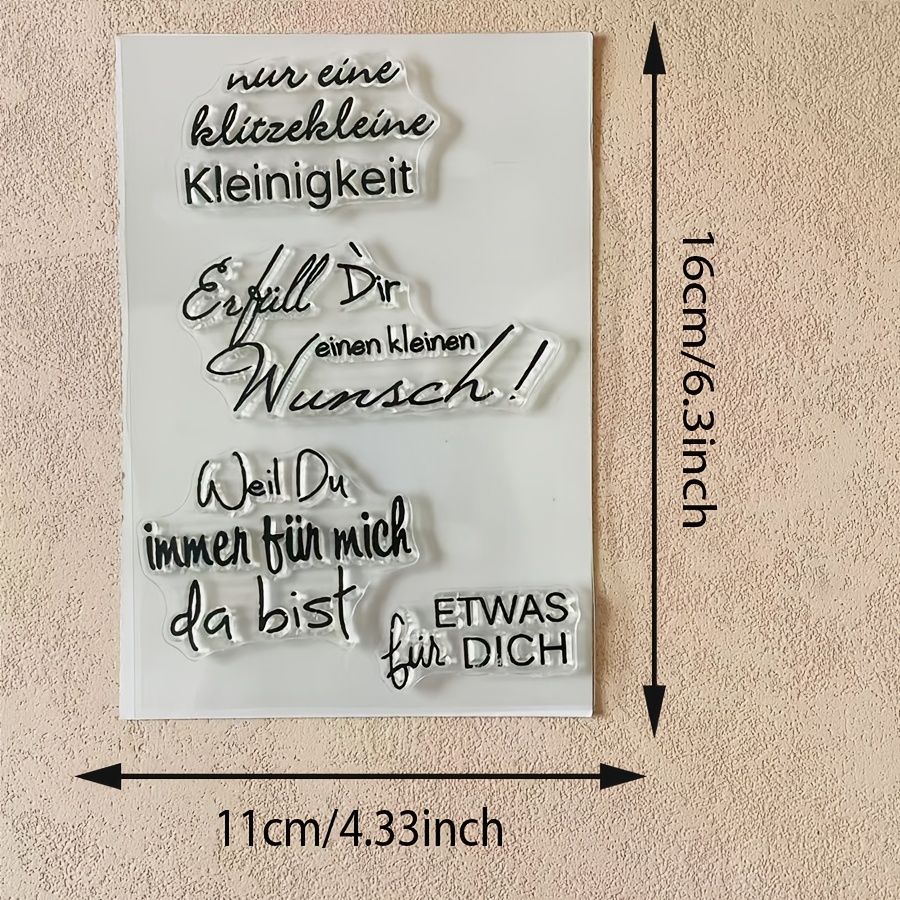 nur eine
klitzekleine
Kleinigkeit
Erfüll Dir
einen kleinen
Wunsch!
Weil Du
immer für mich
da bist
ETWAS
für DICH
16cm/6.3inch
11cm/4.33inch